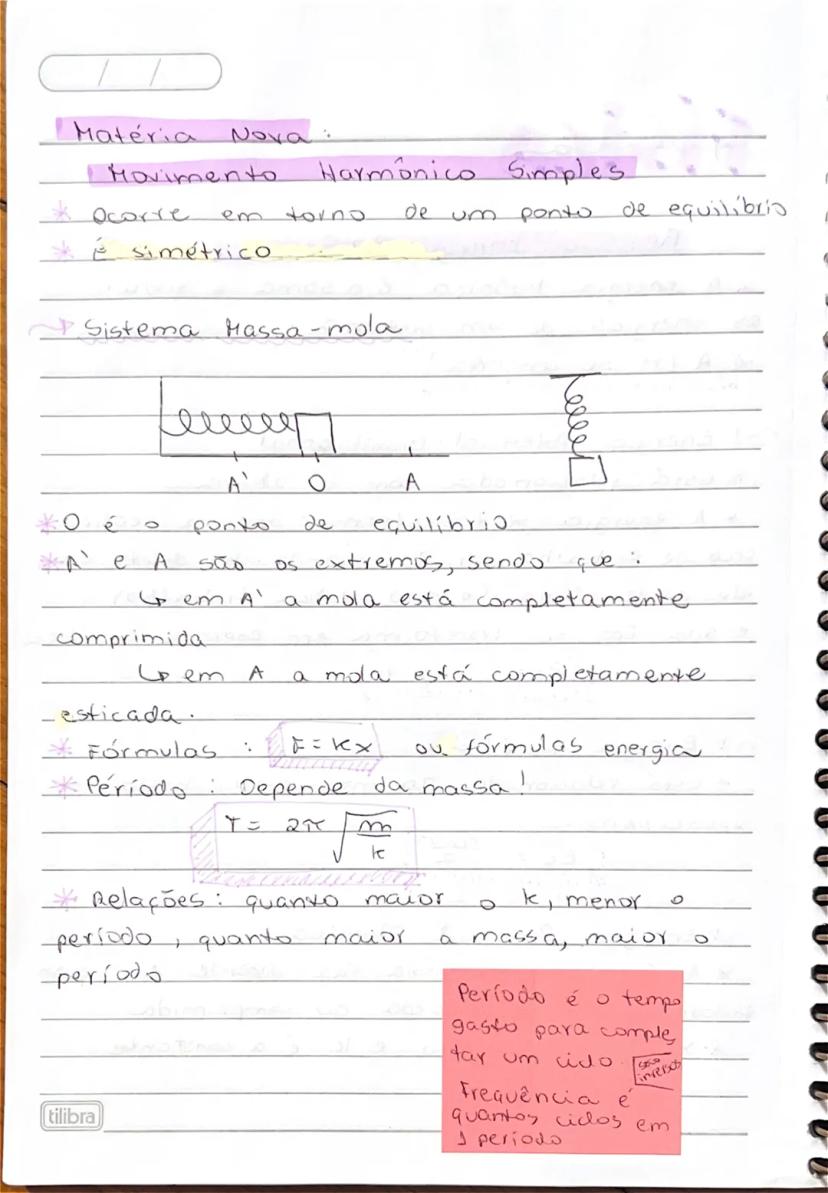 / /
Matéria Nova :
Movimento Harmônico Simples
* Ocorre em torno de um ponto de equilíbrio
* É simétrico
→ Sistema Massa-mola
A' O A
* O é o ponto de equilíbrio
* A' e A são os extremos, sendo que :
↳ em A' a mola está completamente
comprimida
↳ em A a mola está completamente
esticada.
* Fórmulas : F = Kx ou fórmulas energia
* Período : Depende da massa!
T = 2π √m/k
* Relações : quanto maior o k, menor o
período, quanto maior a massa, maior o
período
Período é o tempo
gasto para comple
tar um ciclo. são inversos
Frequência é
quantos ciclos em
1 período
tilibra